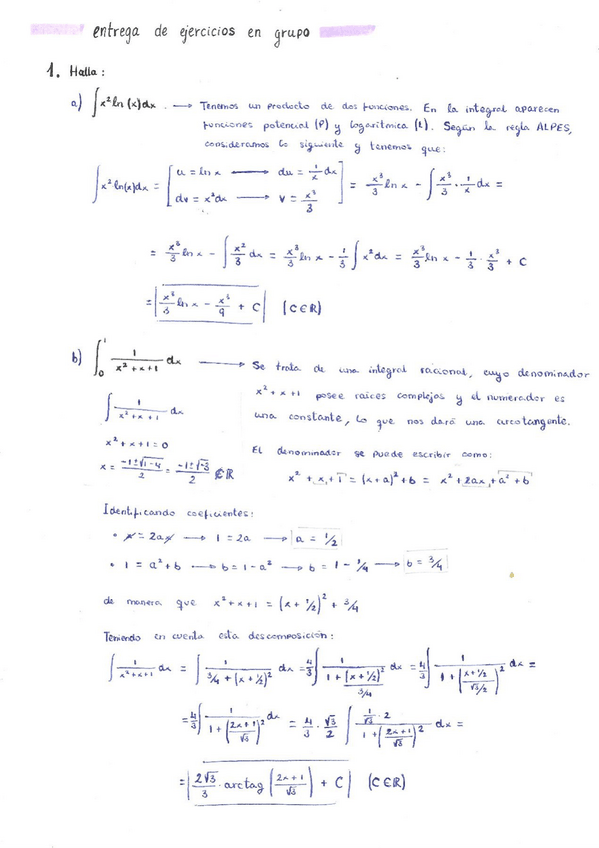 entrega de ejercicios en grupo
1. Halla:
a) ∫x²ln(x)dx. → Tenemos un producto de dos funciones. En la integral aparecen
funciones potencial (P) y logarítmica (L). Según la regla ALPES,
consideramos lo siguiente y tenemos que:
∫x²ln(x)dx = [u = ln x → du = 1/x dx; dv = x²dx → v = x³/3] = x³/3 ln x - ∫x³/3 · 1/x dx =
= x³/3 ln x - ∫x²/3 dx = x³/3 ln x - 1/3 ∫x²dx = x³/3 ln x - 1/3 · x³/3 + C
= x³/3 ln x - x³/9 + C (C∈ℝ)
b) ∫₀¹ 1/(x²+x+1) dx → Se trata de una integral racional, cuyo denominador
x²+x+1 posee raíces complejas y el numerador es
∫ 1/(x²+x+1) dx una constante, lo que nos dará una arcotangente.
x²+x+1=0
x = (-1±√1-4)/2 = (-1±√-3)/2 ∉ℝ El denominador se puede escribir como:
x² + x + 1 = (x+a)²+b = x²+2ax+a²+b
Identificando coeficientes:
• x = 2ax → 1 = 2a → a = 1/2
• 1 = a²+b → b = 1-a² → b = 1 - 1/4 → b = 3/4
de manera que x²+x+1 = (x+1/2)² + 3/4
Teniendo en cuenta esta descomposición:
∫ 1/(x²+x+1) dx = ∫ 1/(3/4 + (x+1/2)²) dx = 4/3 ∫ 1/(1 + (x+1/2)²/(3/4)) dx = 4/3 ∫ 1/(1 + ((x+1/2)/(√3/2))²) dx =
= 4/3 ∫ 1/(1 + ((2x+1)/√3)²) dx = 4/3 · √3/2 ∫ (1/√3 · 2)/(1 + ((2x+1)/√3)²) dx =
= 2√3/3 · arctag ((2x+1)/√3) + C (C∈ℝ)